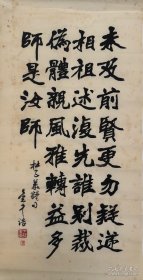 未及前賢更勿疑遞
相祖述復先誰別裁
偽體親風雅轉益多
師是汝師